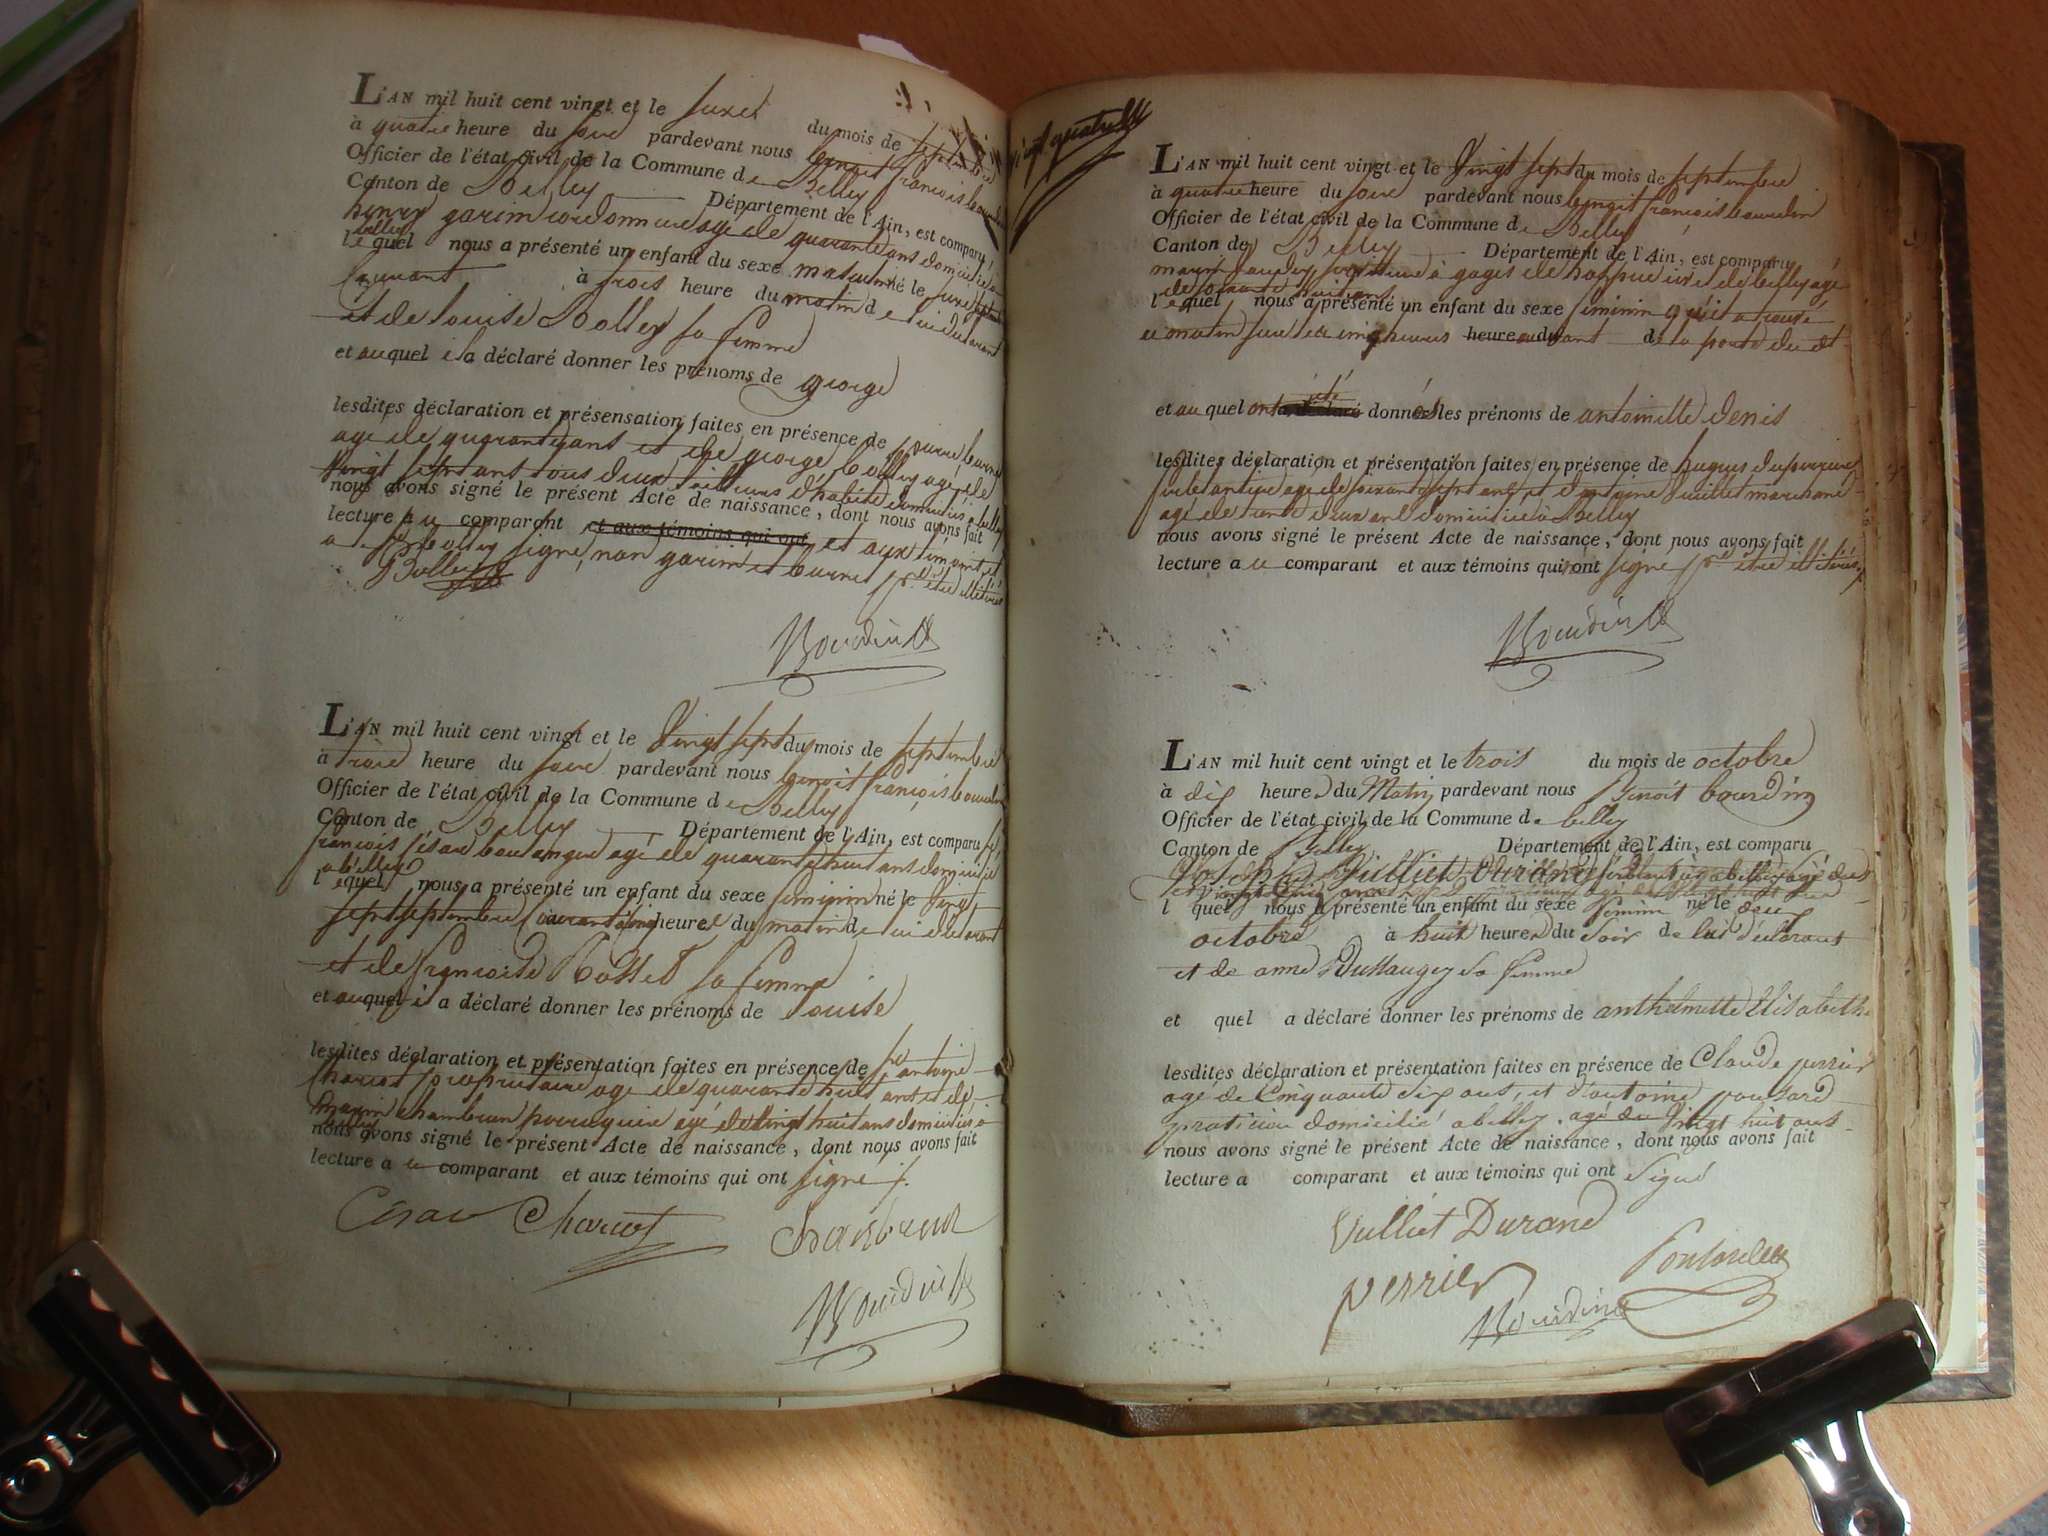 L'AN mil huit cent vingt et le seize du mois de septembre
à quatre heure du soir pardevant nous benoit françois bourdin
Officier de l'état civil de la Commune de Belley
Canton de Belley Département de l'Ain, est comparu
henry garin cordonnier agé de quarante ans domicilié à
belley
lequel nous a présenté un enfant du sexe masculin né le seize septembre
courant à trois heure du matin de lui déclarant
et de louise Bolley sa femme
et auquel il a déclaré donner les prénoms de george
lesdites déclaration et présensation faites en présence de pierre burnet
agé de quarante ans et de george bolley agé de
vingt sept ans tous deux tailleurs d'habits domiciliés à belley
nous avons signé le présent Acte de naissance, dont nous avons fait
lecture a ce comparant et aux témoins qui ont et aux témoins et
a le bolley signé, non garin et burnet pr être illitérés
GBolley
Bourdin
L'AN mil huit cent vingt et le vingt sept du mois de septembre
à trois heure du soir pardevant nous benoit françois bourdin
Officier de l'état civil de la Commune de Belley
Canton de Belley Département de l'Ain, est comparu
françois césar boulanger agé de quarante huit ans domicilié
a belley
lequel nous a présenté un enfant du sexe féminin né le vingt
sept septembre courant à cinq heures du matin de lui déclarant
et de françoise Rosset sa femme
et auquel il a déclaré donner les prénoms de louise
lesdites déclaration et présentation faites en présence de antoine
Charcot propriétaire agé de quarante huit ans et de
marin chambeau perruquier agé de vingt huit ans domiciliés à
belley
nous avons signé le présent Acte de naissance, dont nous avons fait
lecture a ce comparant et aux témoins qui ont signé /.
César Charcot
Bourdin
vingt quatre
L'AN mil huit cent vingt et le vingt sept du mois de septembre
à quatre heure du soir pardevant nous benoit françois bourdin
Officier de l'état civil de la Commune de Belley
Canton de Belley Département de l'Ain, est comparu
marin serviteur à gages de hospice de belley agé
de soixante huit ans
lequel nous a présenté un enfant du sexe féminin qu'il a trouvé
ce matin sur les cinq heures heure au devant de la porte du dt
et au quel ont été a déclaré donnés les prénoms de antoinette denis
lesdites déclaration et présentation faites en présence de hugues
agé de soixante sept ans et d'antoine marchand
agé de trente deux ans domiciliés à Belley
nous avons signé le présent Acte de naissance, dont nous avons fait
lecture a ce comparant et aux témoins qui n'ont signé pr être illitérés /.
Bourdin
L'AN mil huit cent vingt et le trois du mois de octobre
à dix heures du Matin pardevant nous Benoit bourdin
Officier de l'état civil de la Commune de belley
Canton de Belley Département de l'Ain, est comparu
Joseph Vulliet Durand ferblantier a belley agé de
l quel nous a présenté un enfant du sexe féminin né le deux
octobre à huit heures du soir de lui déclarant
et de anne Dullaugey sa femme
et quel a déclaré donner les prénoms de anthelmette Elisabeth
lesdites déclaration et présentation faites en présence de Claude perrier
agé de Cinquante six ans, et d'antoine ponsard
praticien domicilié a belley. agé de vingt huit ans
nous avons signé le présent Acte de naissance, dont nous avons fait
lecture a comparant et aux témoins qui ont signé
Vulliet Durand
perrier
Bourdin